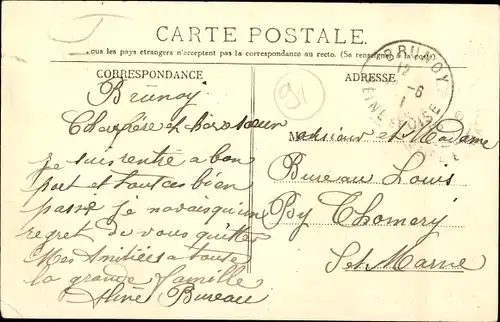 CARTE POSTALE
Tous les pays étrangers n'acceptent pas la correspondance au recto. (Se renseigner à la
CORRESPONDANCE
ADRESSE
BRUNOY
12
-6
SEINE ET OISE
91
Brunoy
Cher frère et
je suis rentré a bon
port et tout ces bien
passé je navais qu'un
regret de vous quitter
Mes Amitiées a toute
la grande famille
Bureau
Monsieur et Madame
Bureau Louis
By Thomery
St Marne